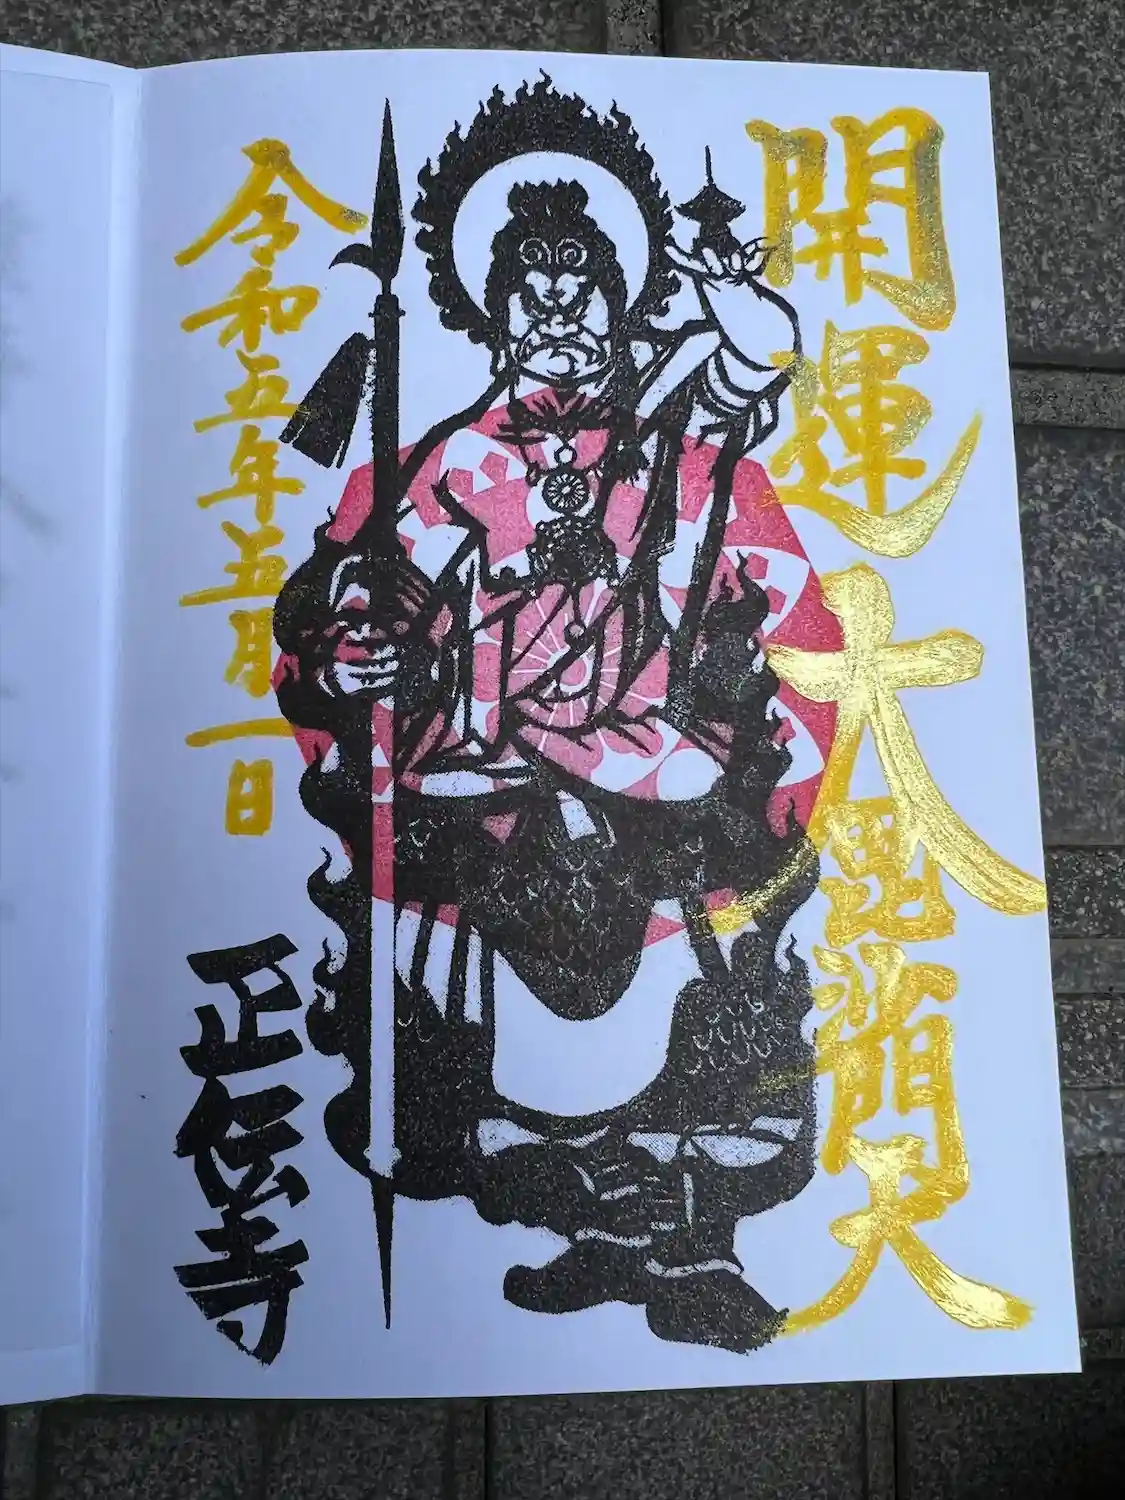 開運大毘沙門天
令和五年五月一日
正伝寺